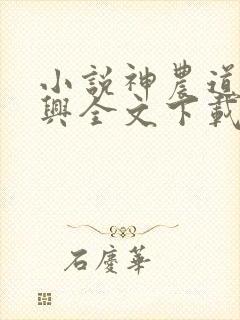 小說神農道
興全文下載
石慶華